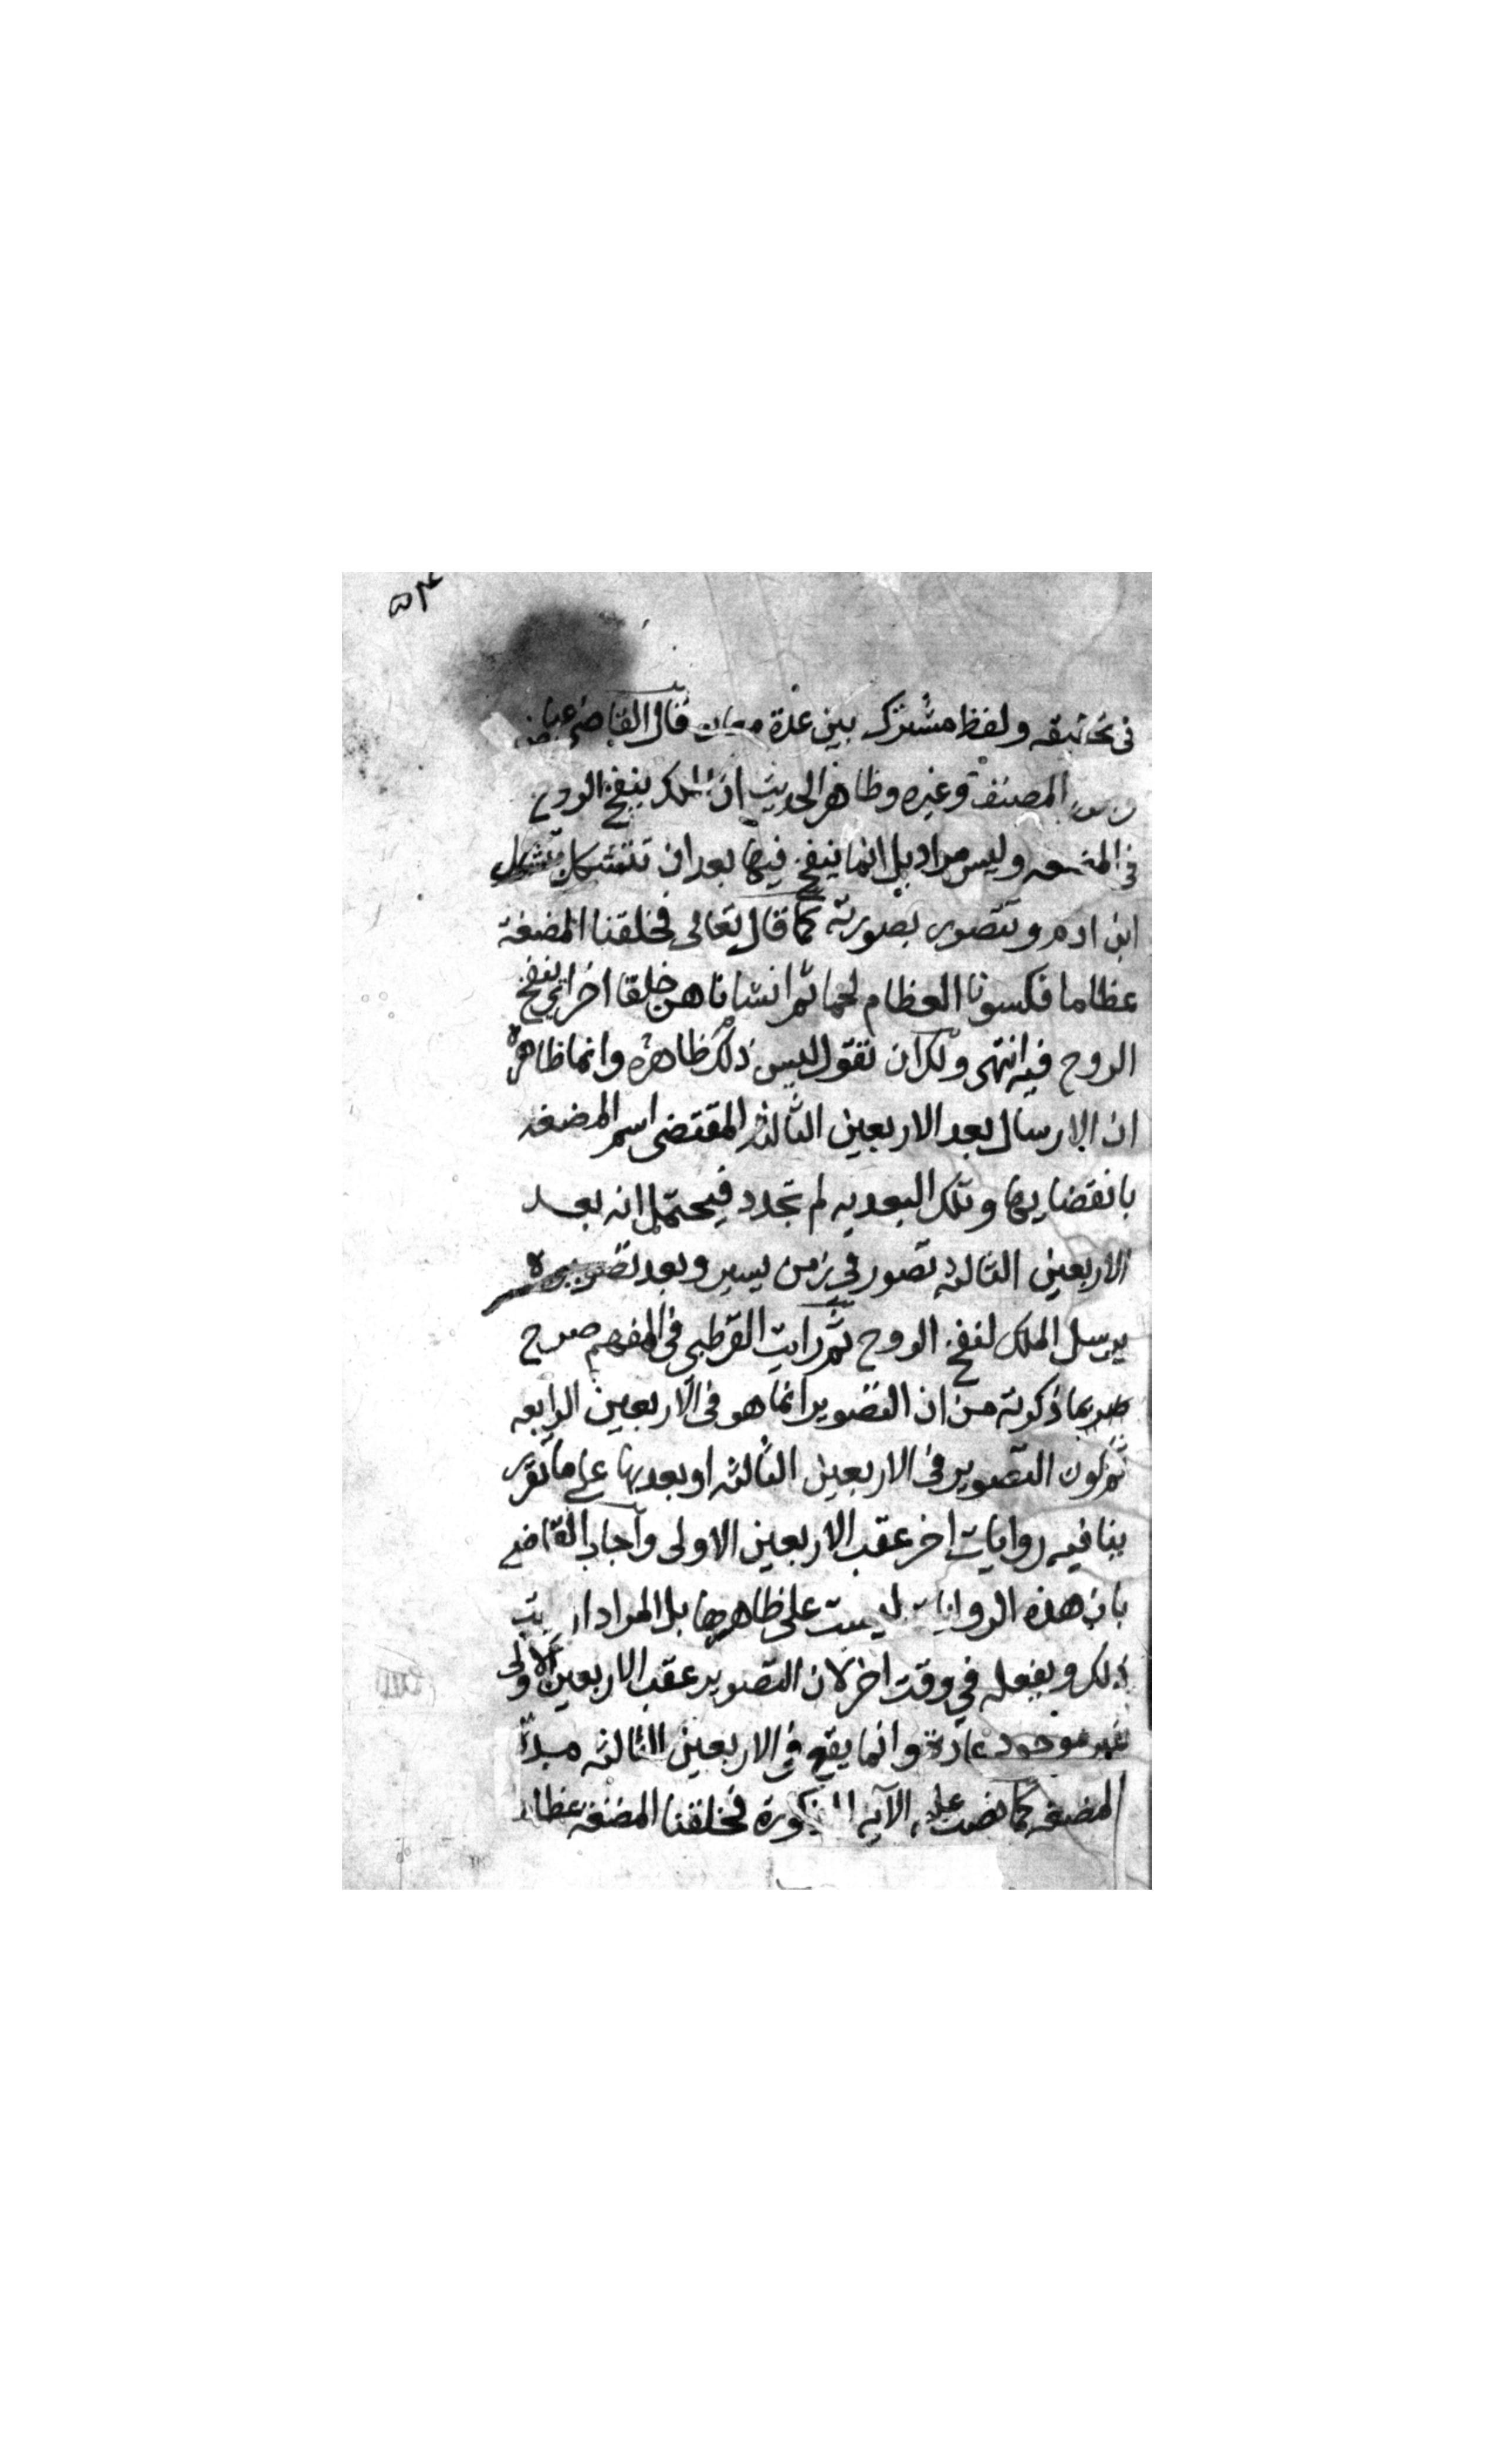 ٥٣
في تحقيقه ولفظ مشترك بين عدة معان قال القاضي عياض
المصنف وغيره وظاهر الحديث ان الملك ينفخ الروح
في المضغه وليس مراد بل انما ينفخ فيها بعد ان تتشكل بشكل
ابن ادم وتتصور بصورته كما قال تعالى فخلقنا المضغة
عظاما فكسونا العظام لحما ثم انشاناه خلقا اخر اي بنفخ
الروح فيه انتهى ولك ان تقول ليس ذلك ظاهره وانما ظاهره
ان الارسال بعد الاربعين الثالثه المقتضى اسم المضغه
بانقضايها وتلك البعديه لم تحدد فيحتمل انه بعد
الاربعين الثالثه تصور في زمن يسير وبعد تصويره
يرسل الملك لنفخ الروح ثم رايت القرطبي في المفهم صرح
بما ذكرته من ان التصوير انما هو في الاربعين الرابعه
ثم كون التصوير في الاربعين الثالثه او بعدها على ما تقرر
ينافيه روايات اخر عقب الاربعين الاولى واجاب القاضي
بان هذه الروايات ليست على ظاهرها بل المراد
ذلك ويفعله في وقت اخر لان التصوير عقب الاربعين الاولى
غير موجود عادة وانما يقع في الاربعين الثالثه مدة
المضغه كما نصت عليه الآيه المذكورة فخلقنا المضغه عظاما